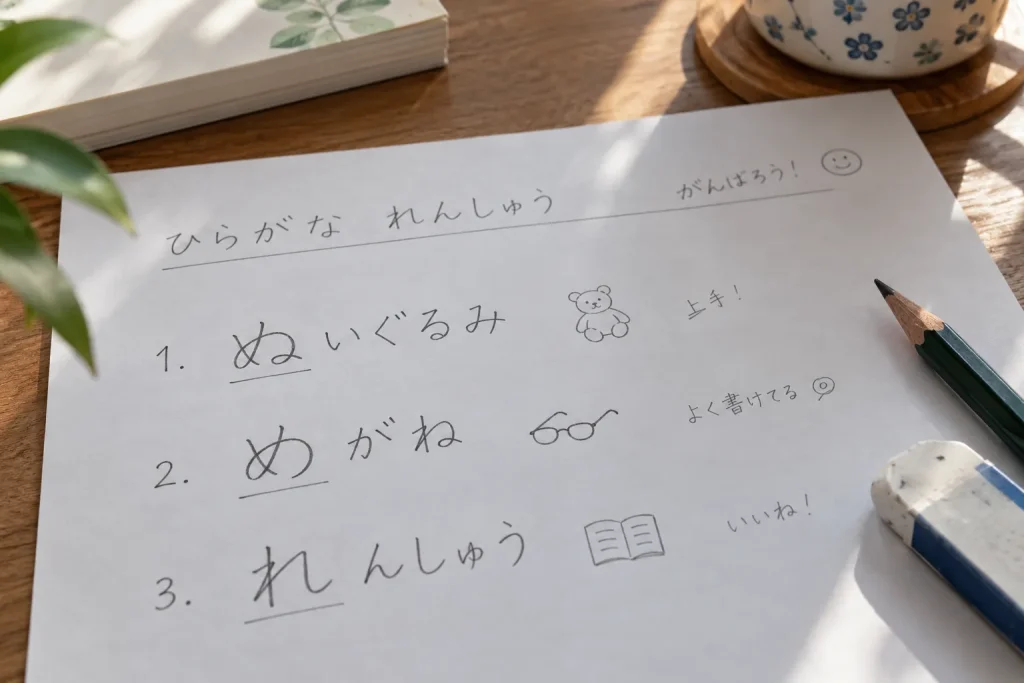 ひらがな れんしゅう がんばろう!
1. ぬいぐるみ 上手!
2. めがね よく書けてる
3. れんしゅう いいね!